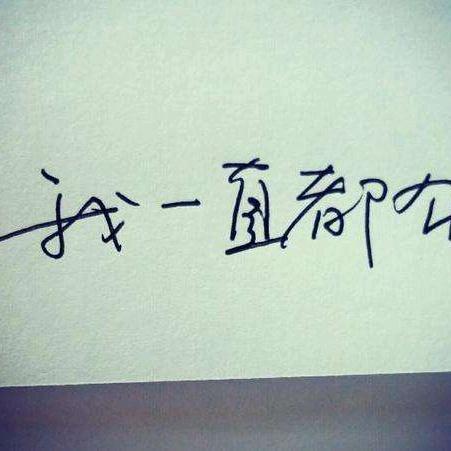 我一直都在